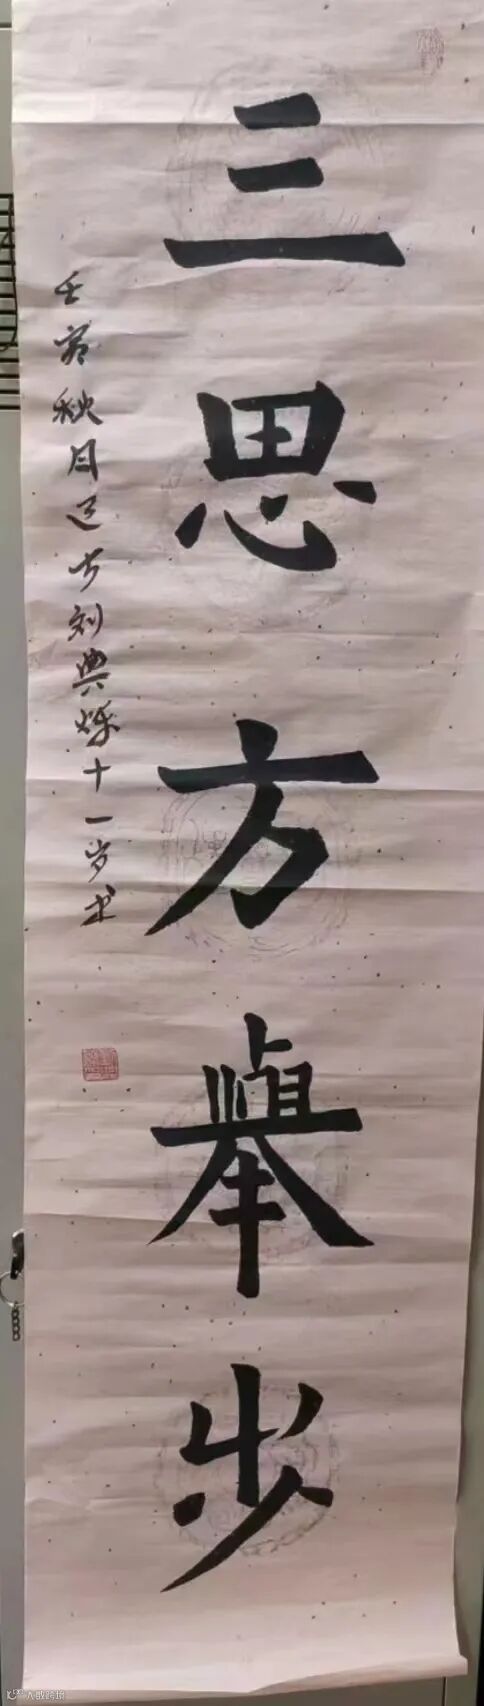 三思方舉步
壬寅秋月吕步刘典烁十一岁书